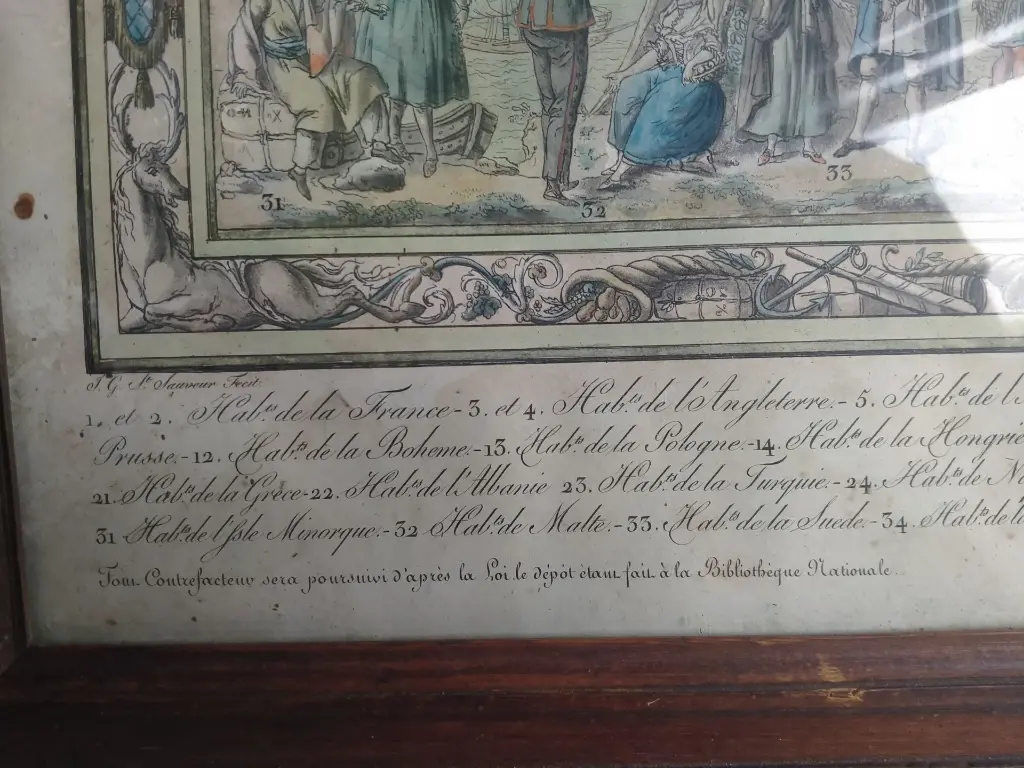 31
32
33
J. G. St. Sauveur Fecit.
1. et 2. Hab.ts de la France - 3. et 4. Hab.ts de l'Angleterre. - 5. Hab.ts de l'
Prusse. - 12. Hab.ts de la Boheme. - 13. Hab.ts de la Pologne. - 14. Hab.ts de la Hongrie
21. Hab.ts de la Grèce - 22. Hab.ts de l'Albanie 23. Hab.ts de la Turquie. - 24. Hab.ts de
31 Hab.ts de l'Isle Minorque. - 32 Hab.ts de Malte. - 33. Hab.ts de la Suede. - 34. Hab.ts de
Tout Contrefacteur sera poursuivi d'après la Loi le dépôt étant fait à la Bibliothèque Nationale.